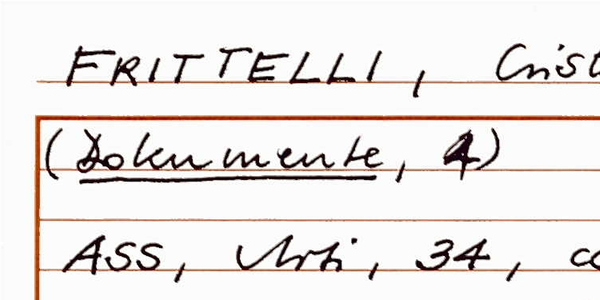 FRITTELLI, Crist
(Dokumente, 4)
ASS, Arti, 34, co